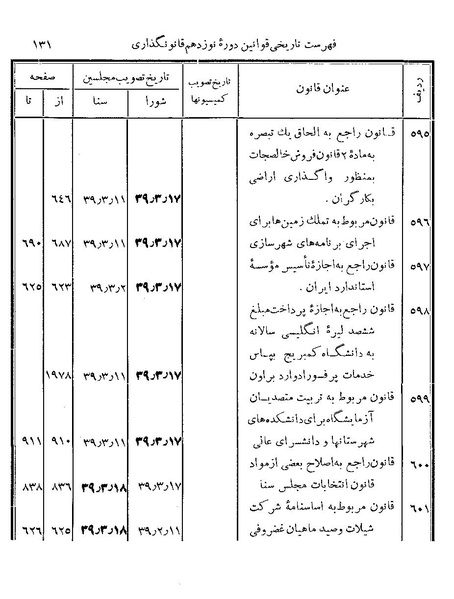 فهرست تاریخی قوانین دورهٔ نوزدهم قانونگذاری ۱۳۱
ردیف عنوان قانون تاریخ تصویب کمیسیونها تاریخ تصویب مجلسین صفحه
شورا سنا از تا
۵۹۵ قانون راجع به الحاق یك تبصره
به مادهٔ ۲ قانون فروش خالصجات
بمنظور واگذاری اراضی
بکارگران . ۳۹٫۳٫۱۷ ۳۹٫۳٫۱۱ ۶۴۶
۵۹۶ قانون مربوط به تملك زمین‌ها برای
اجرای برنامه‌های شهرسازی ۳۹٫۳٫۱۷ ۳۹٫۳٫۱۱ ۶۸۷ ۶۹۰
۵۹۷ قانون راجع به اجازهٔ تأسیس مؤسسهٔ
استاندارد ایران . ۳۹٫۳٫۱۷ ۳۹٫۳٫۲ ۶۲۳ ۶۲۵
۵۹۸ قانون راجع به اجازهٔ پرداخت مبلغ
ششصد لیرهٔ انگلیسی سالانه
به دانشگاه کمبریج بپاس
خدمات پرفسور ادوارد براون ۳۹٫۳٫۱۷ ۳۹٫۳٫۱۱ ۱۹۷۸
۵۹۹ قانون مربوط به تربیت متصدیان
آزمایشگاه برای دانشکده‌های
شهرستانها و دانشسرای عالی ۳۹٫۳٫۱۷ ۳۹٫۳٫۱۱ ۹۱۰ ۹۱۱
۶۰۰ قانون راجع به اصلاح بعضی از مواد
قانون انتخابات مجلس سنا ۳۹٫۳٫۱۷ ۳۹٫۳٫۱۸ ۸۳۶ ۸۳۸
۶۰۱ قانون مربوط به اساسنامهٔ شرکت
شیلات وصید ماهیان غضروفی ۳۹٫۲٫۱۱ ۳۹٫۳٫۱۸ ۶۲۵ ۶۲۶